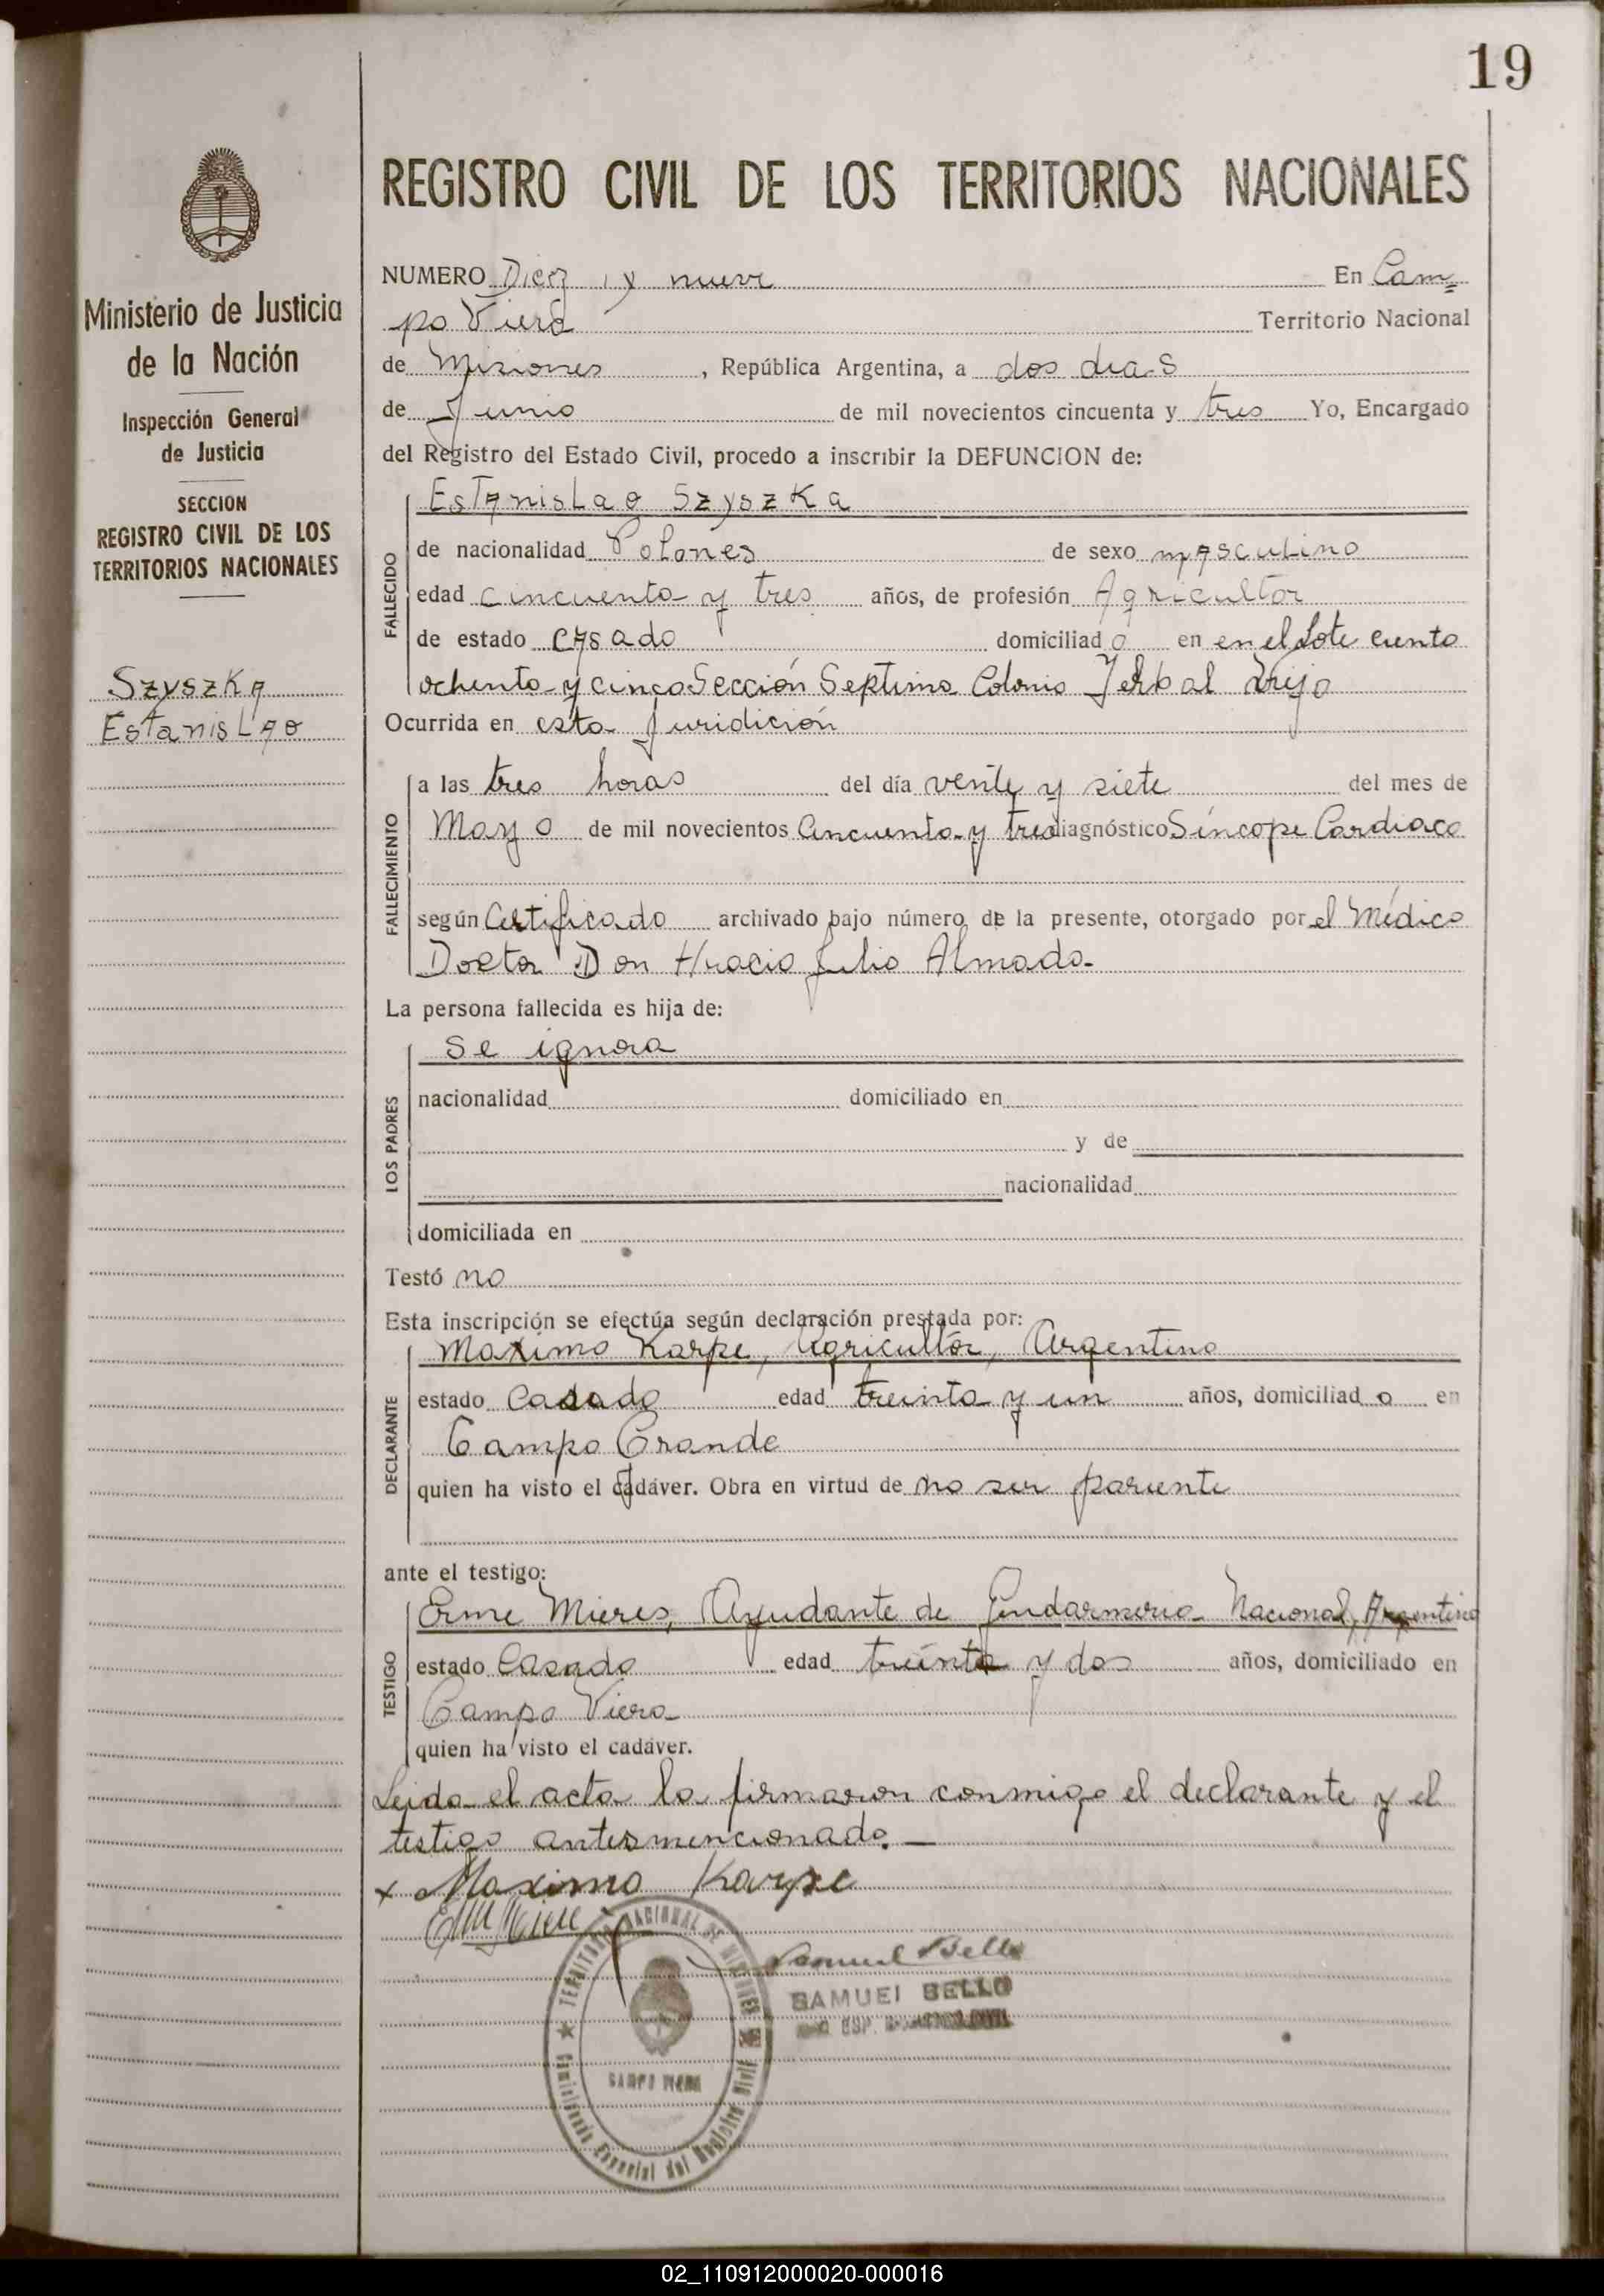 19
REGISTRO CIVIL DE LOS TERRITORIOS NACIONALES
Ministerio de Justicia
de la Nación
Inspección General
de Justicia
SECCION
REGISTRO CIVIL DE LOS
TERRITORIOS NACIONALES
Szyszka
Estanislao
NUMERO Diez y nueve En Cam=
po Viera Territorio Nacional
de Misiones, República Argentina, a dos dias
de Junio de mil novecientos cincuenta y tres Yo, Encargado
del Registro del Estado Civil, procedo a inscribir la DEFUNCION de:
FALLECIDO
Estanislao Szyszka
de nacionalidad Polones de sexo masculino
edad cincuenta y tres años, de profesión Agricultor
de estado casado domiciliado en en el Lote ciento
ochenta y cinco Sección Septima Colonia Yerbal Viejo
Ocurrida en esta Juridición
FALLECIMIENTO
a las tres horas del día veinte y siete del mes de
Mayo de mil novecientos cincuenta y tres diagnóstico Síncope Cardiaco
según Certificado archivado bajo número de la presente, otorgado por el Médico
Doctor Don Hracio Julio Almada
La persona fallecida es hija de:
LOS PADRES
Se ignora
nacionalidad domiciliado en
y de
nacionalidad
domiciliada en
Testó no
Esta inscripción se efectúa según declaración prestada por:
DECLARANTE
Maximo Karpe, Agricultor, Argentino
estado Casado edad treinta y un años, domiciliado en
Campo Grande
quien ha visto el cadáver. Obra en virtud de no ser pariente
ante el testigo:
TESTIGO
Erme Mieres, Ayudante de Gendarmeria Nacional, Argentino
estado Casado edad treinta y dos años, domiciliado en
Campo Viera
quien ha visto el cadáver.
Leida el acta la firmaron conmigo el declarante y el
testigo antes mencionado.
x Maximo Karpe
Samuel Bello
SAMUEL BELLO
TERRITORIO NACIONAL DE MISIONES
CAMPO VIERA
Especial del Registro Civil
02_110912000020-000016